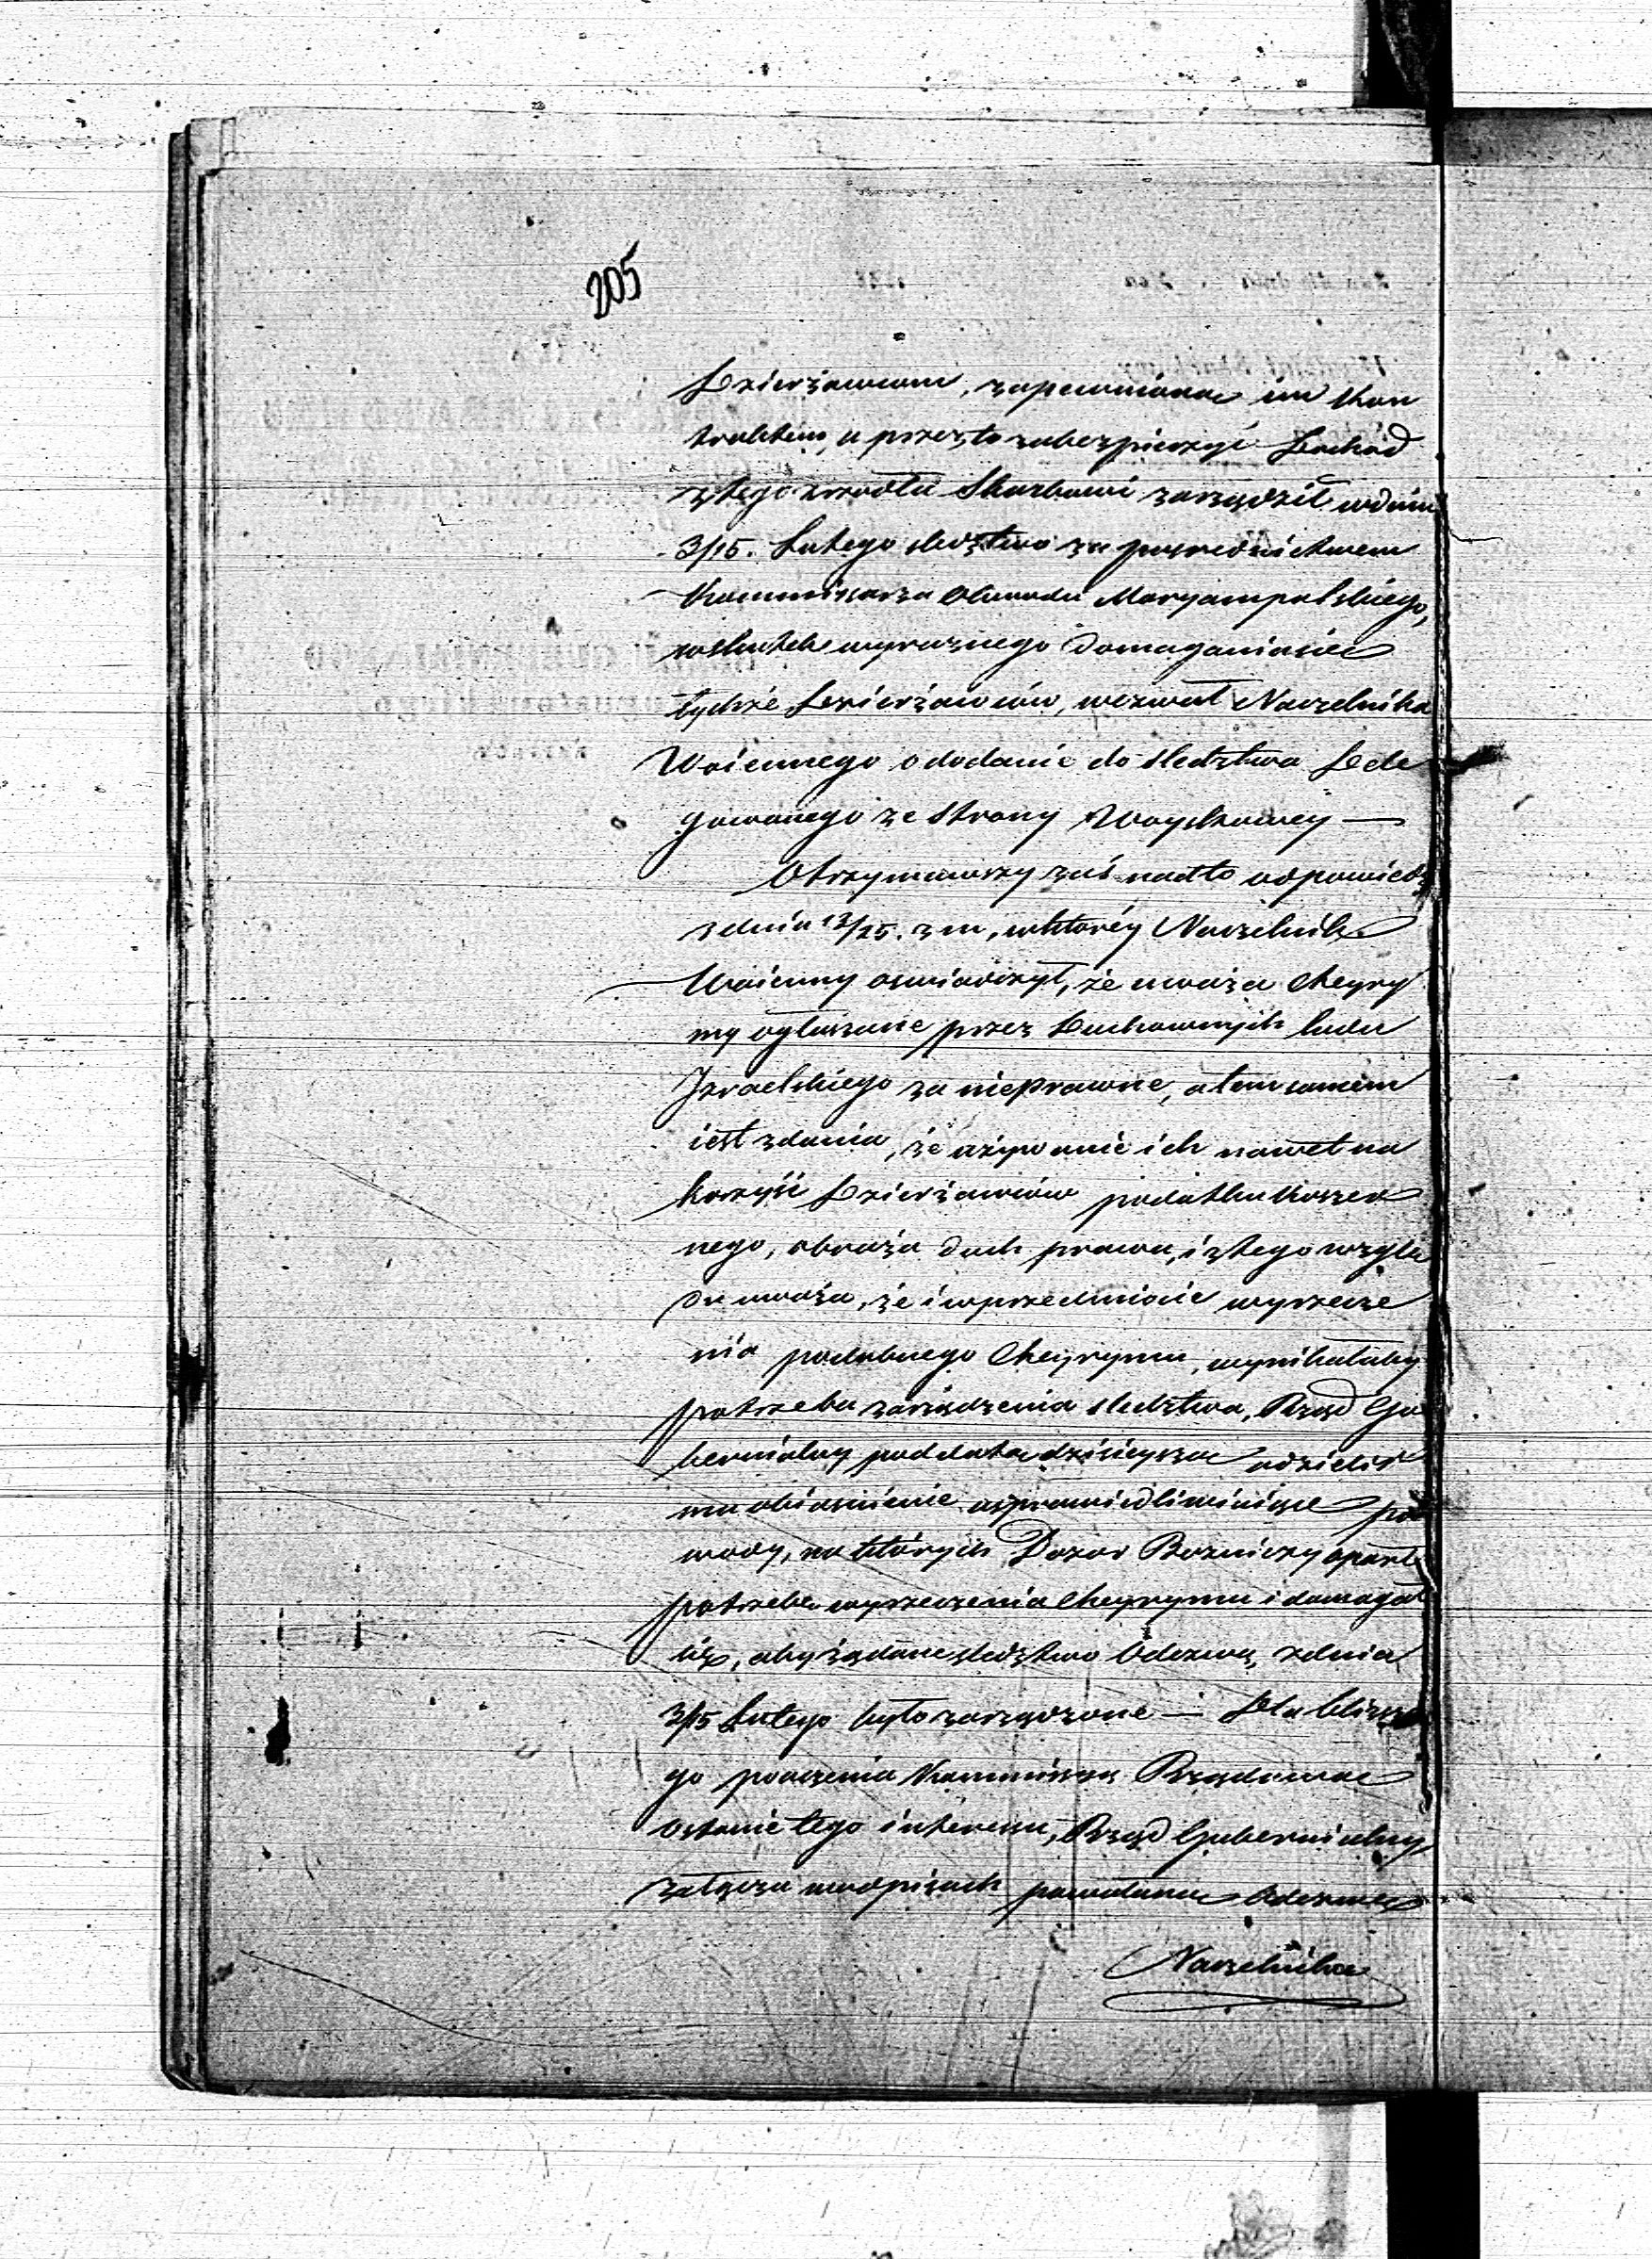 205
Dzierżawcom, zapewnione im Kon
traktem, a przez to zabezpieczyć Dochód
z tego zrzódła Skarbowi zarządził w dniu
3/15. Lutego sledztwo za posrednictwem
Kommissarza Obwodu Maryampolskiego,
wskutek wyraznego domagania się
tychże Dzierżawców, wezwał Naczelnika
Woiennego o dodanie do sledztwa Dele
gowanego ze strony Woyskowey —
Otrzymawszy zaś na to odpowiedź
z dnia 13/25. z m, w którey Naczelnik
Woienny oswiadczył, że uważa Cheyry
my ogłaszane przez Duchownych ludu
Izraelskiego za nieprawne, a tem samem
iest zdania, że używanie ich nawet na
korzyść Dzierżawców podatku koszer
nego, obraża duch prawa, i z tego wzglę
du uważa, że i w przedmiocie wyrzecze
nia podobnego Cheyrymu, wynikałaby
potrzeba zarządzenia sledztwa, Rząd Gu
bernialny pod datą dzisieyszą udzielił
mu obiasnienie usprawiedliwiaiące po
wody, na których Dozór Bożniczy oparł
potrzebę wyrzeczenia Cheyrymu i domagał
się, aby żądane sledztwo Odezwą z dnia
3/15 Lutego było zarządzone — Dla bliższe
go powzięcia Kommissya Rządowa
o stanie tego interessu, Rząd Gubernialny,
załącza w odpisach powołane Odezwy
Naczelnika